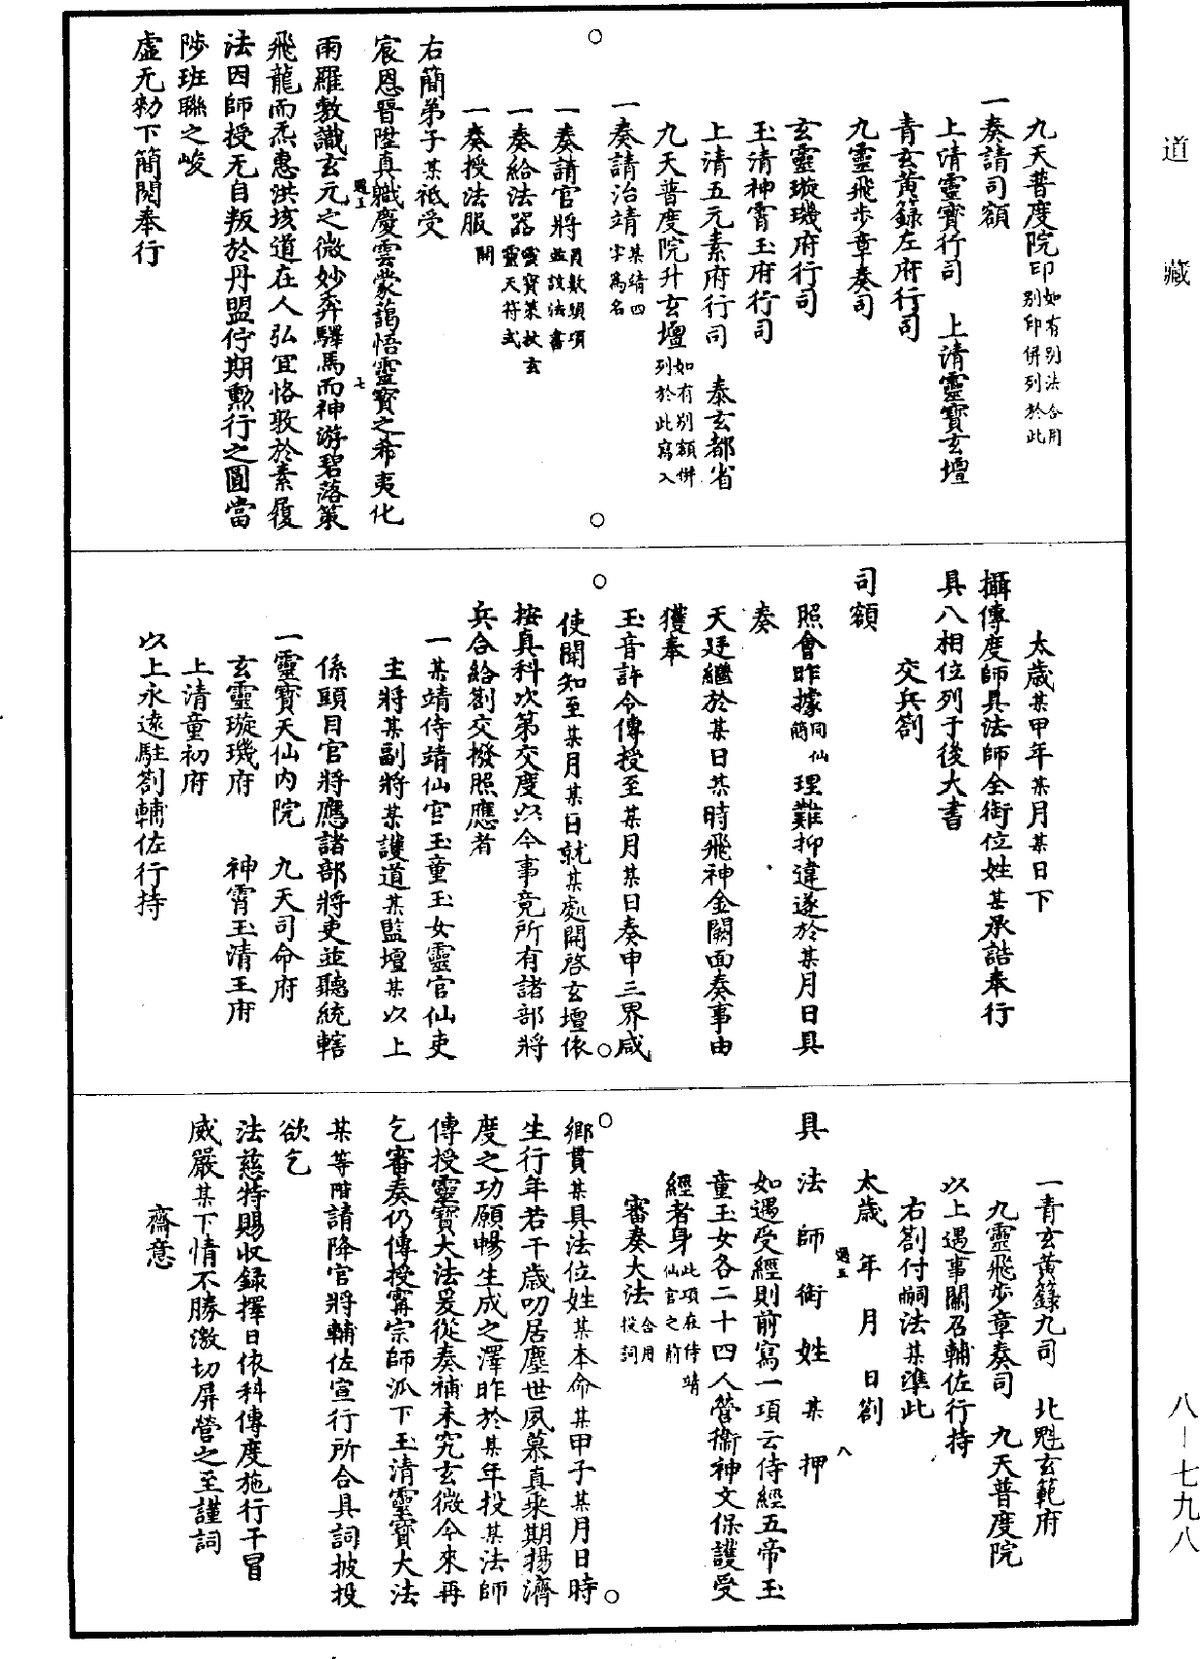 道藏
九天普度院印如有別法合用別印併列於此
一奏請司額
上清靈寶行司　上清靈寶玄壇
青玄黃籙左府行司
九靈飛步章奏司
玄靈璇璣府行司
玉清神霄玉府行司
上清五元素府行司　泰玄都省
九天普度院升玄壇如有別額併列於此寫入
一奏請治靖某靖四字為名
一奏請官將員數頭項並該法書
一奏給法器靈寶策杖玄靈天符式
一奏授法服開
右簡弟子某祗受
宸恩晉陞真職慶雲蒙藹悟靈寶之希夷化
雨羅敷識玄元之微妙奔驛馬而神游碧落策
飛龍而炁惠洪垓道在人弘宜恪敬於素履
法因師授无自叛於丹盟佇期勲行之圓當
陟班聯之峻
虛无勑下簡閱奉行
太歲某甲年某月某日下
攝傳度師具法師全銜位姓某承誥奉行
具八相位列于後大書
交兵劄
司額
照會昨據同仙簡理難抑違遂於某月日具
奏
天廷繼於某日某時飛神金闕面奏事由
獲奉
玉音許令傳授至某月某日奏申三界咸
使聞知至某月某日就某處開啓玄壇依
按真科次第交度以今事竟所有諸部將
兵合給劄交撥照應者
一某靖侍靖仙官玉童玉女靈官仙吏
主將某副將某護道某監壇某以上
係頭目官將應諸部將吏並聽統轄
一靈寶天仙內院　九天司命府
玄靈璇璣府　神霄玉清王府
上清童初府
以上永遠駐劄輔佐行持
一青玄黃籙九司　北魁玄範府
九靈飛步章奏司　九天普度院
以上遇事關召輔佐行持
右劄付嗣法某準此
太歲　年　月　日劄
具法師銜姓某押
如遇受經則前寫一項云侍經五帝玉
童玉女各二十四人營衞神文保護受
經者身此項在侍靖仙官之前
審奏大法合用投詞
鄉貫某具法位姓某本命某甲子某月日時
生行年若干歲叨居塵世夙慕真乘期揚濟
度之功願暢生成之澤昨於某年投某法師
傳授靈寶大法爰從奏補未究玄微今來再
乞審奏仍傳授甯宗師派下玉清靈寶大法
某等階請降官將輔佐宣行所合具詞披投
欲乞
法慈特賜收錄擇日依科傳度施行干冒
威嚴某下情不勝激切屏營之至謹詞
齋意
八－七九八